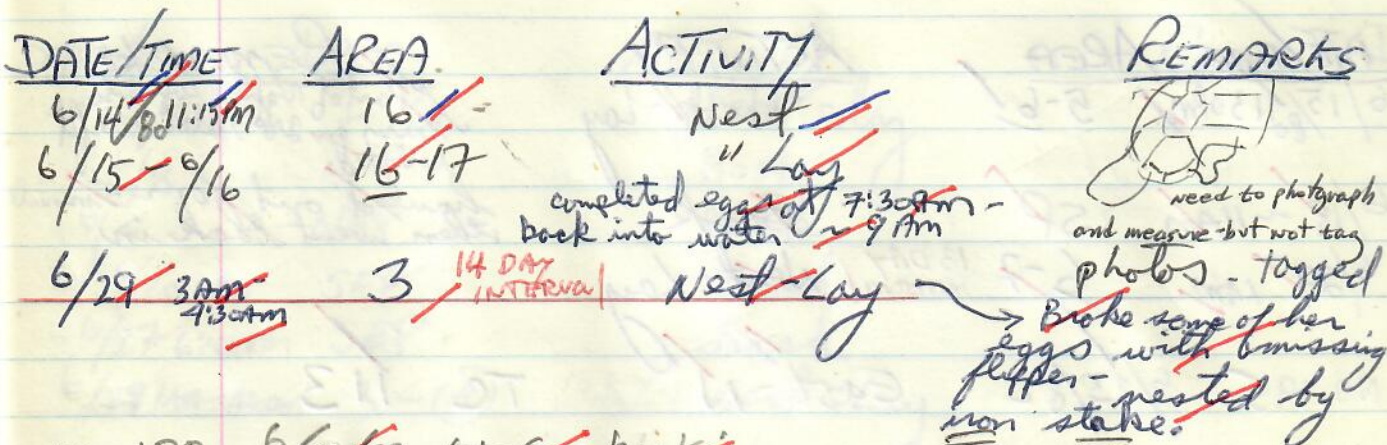 DATE/TIME AREA ACTIVITY REMARKS
6/14/80 11:15PM 16 Nest
6/15 - 6/16 16-17 " Lay
completed eggs at 7:30AM -
back into water ~ 9AM
need to photgraph
and measure - but not tag
6/29 3AM - 4:30AM 3 14 DAY INTERVAL Nest - Lay photos - tagged
→ Broke some of her
eggs with missing
flipper - nested by
iron stake.